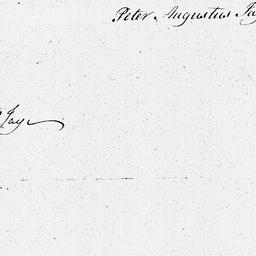 Peter Augustus Ja
Jay